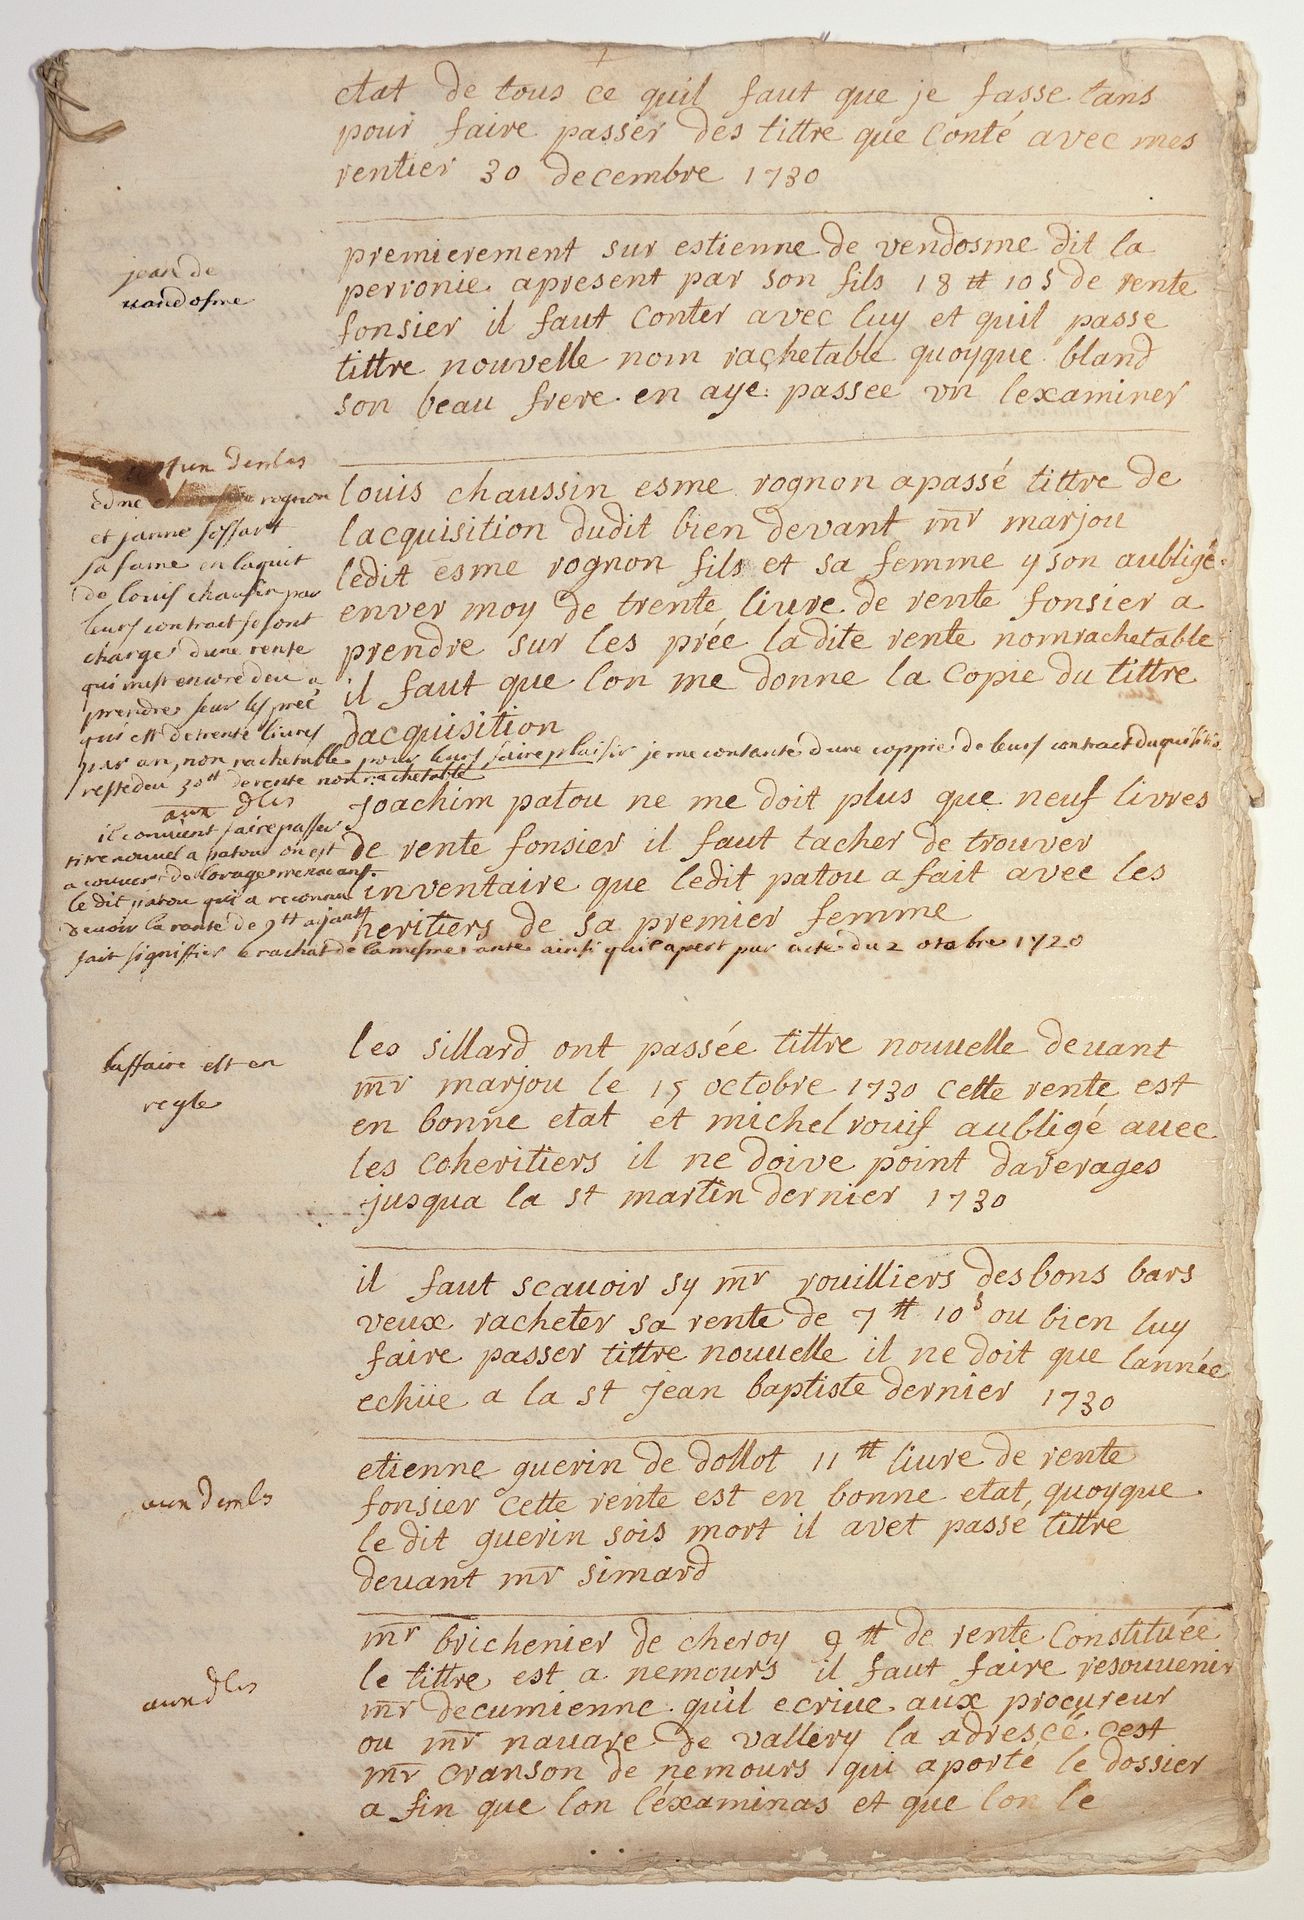 etat de tous ce quil faut que je fasse tans
pour faire passer des tittre que Conté avec mes
rentier 30 decembre 1730
jean de
vandosme
premierement sur estienne de vendosme dit la
perronie apresent par son fils 18 tt 10 s de rente
fonsier il faut Conter avec luy et quil passe
tittre nouvelle nom rachetable quoyque bland
son beau frere en aye passee vn lexaminer
edme rognon
et janne
sa fame en laquit
de louis chausin par
leurs contract se sont
charge dune rente
qui mest encore deu a
prendre seur les preé
qui est de trente livres
par an, non rachetable pour leurs faire plaisir je me contante dune coppie de leurs contract daquisition
reste deu 30tt de rente non rachetable
louis chaussin esme rognon apassé tittre de
lacquisition dudit bien devant mr marjou
ledit esme rognon fils et sa femme y son aubligé
enver moy de trente livre de rente fonsier a
prendre sur les prée ladite rente nomrachetable
il faut que lon me donne la Copie du tittre
dacquisition
il convient faire passer
titre nouvel a patou on est
a couvert de lorage menacant
le dit patou qui a reconnu
devoir la rante de 9tt ajant
fait signiffier le rachat de la mesme rante ainsi quil apert par acte du 2 octobre 1720
joachim patou ne me doit plus que neuf livres
de rente fonsier il faut tacher de trouver
linventaire que ledit patou a fait avec les
heritiers de sa premier femme
laffaire est en
regle
les sillard ont passée tittre nouvelle devant
mr marjou le 15 octobre 1730 cette rente est
en bonne etat et michel rouif aubligé avec
les coheritiers il ne doive point darerages
jusqua la st martin dernier 1730
il faut scavoir sy mr rouilliers des bons bars
veux racheter sa rente de 7 tt 10 s ou bien luy
faire passer tittre nouvelle il ne doit que lannée
echüe a la st jean baptiste dernier 1730
etienne guerin de dollot 11 tt livre de rente
fonsier cette rente est en bonne etat, quoyque
le dit guerin sois mort il avet passé tittre
devant mr simard
mr brichenier de cheroy 9 tt de rente Constituée
le tittre est a nemours il faut faire resouvenir
mr decumienne quil ecrive aux procureur
ou mr navare de vallery la adresçé cest
mr cranson de nemours qui aporté le dossier
a fin que lon léxaminas et que lon le